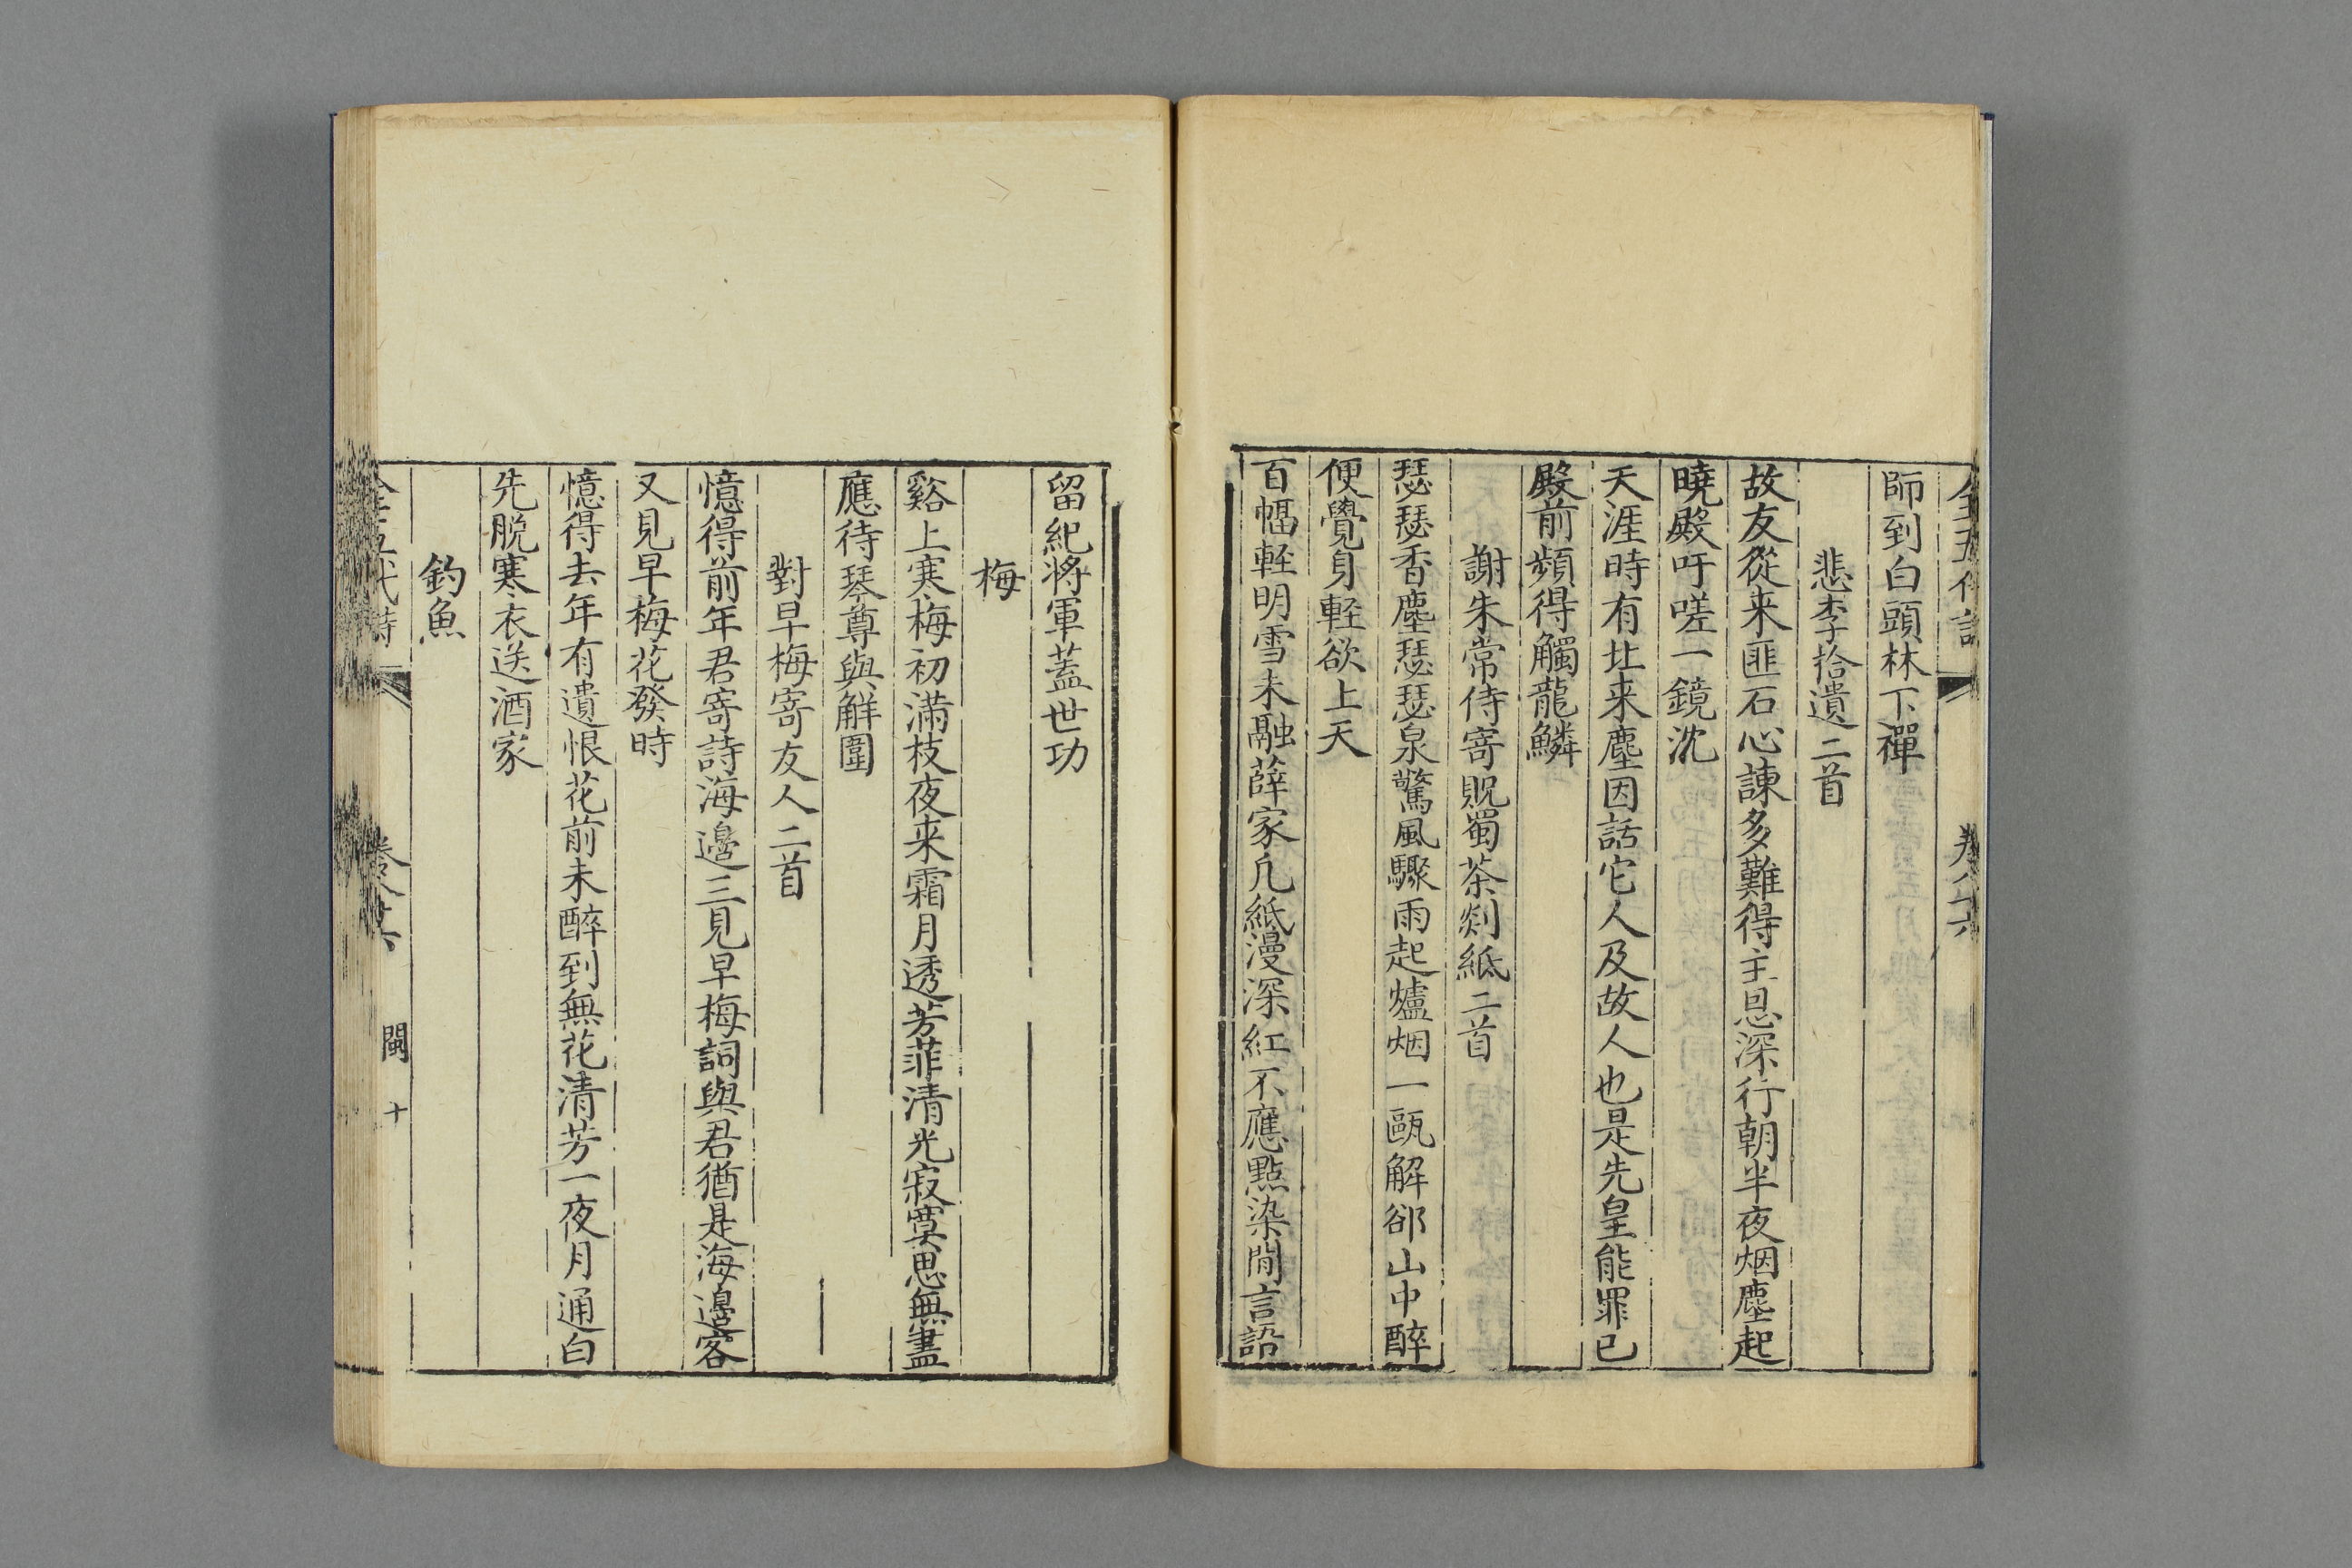 師到白頭林下禪
悲李拾遺二首
故友從来匪石心諫多難得主恩深行朝半夜烟塵起
曉殿吁嗟一鏡沈
天涯時有北来塵因話它人及故人也是先皇能罪已
殿前頻得觸龍鱗
謝朱常侍寄貺蜀茶剡紙二首
瑟瑟香塵瑟瑟泉驚風驟雨起爐烟一甌解郤山中醉
便覺身輕欲上天
百幅輕明雪未融薛家凡紙漫深紅不應點染閒言語
留紀將軍蓋世功
梅
谿上寒梅初滿枝夜来霜月透芳菲清光寂寞思無盡
應待琴尊與觧圍
對早梅寄友人二首
憶得前年君寄詩海邊三見早梅詞與君猶是海邊客
又見早梅花發時
憶得去年有遺恨花前未醉到無花清芳一夜月通白
先脱寒衣送酒家
釣魚
閩 十